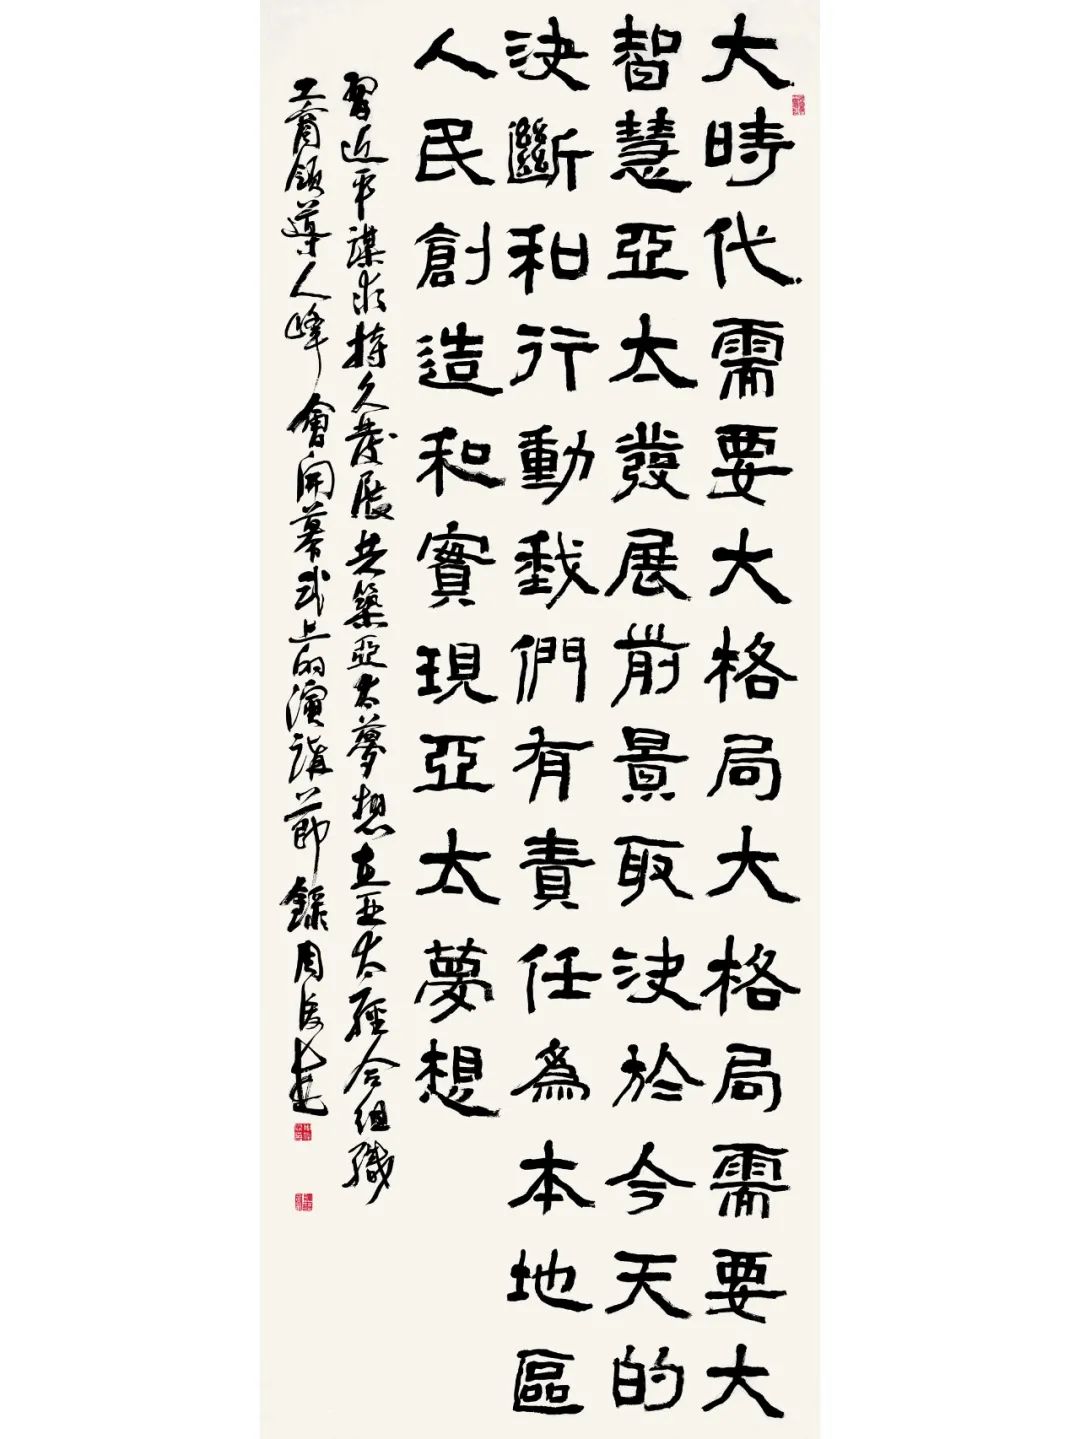 大時代需要大格局大格局需要大
智慧亞太發展前景取決於今天的
決斷和行動我們有責任為本地區
人民創造和實現亞太夢想
習近平謀求持久發展共築亞太夢想在亞太經合組織
工商領導人峰會開幕式上的演講節錄周俊杰